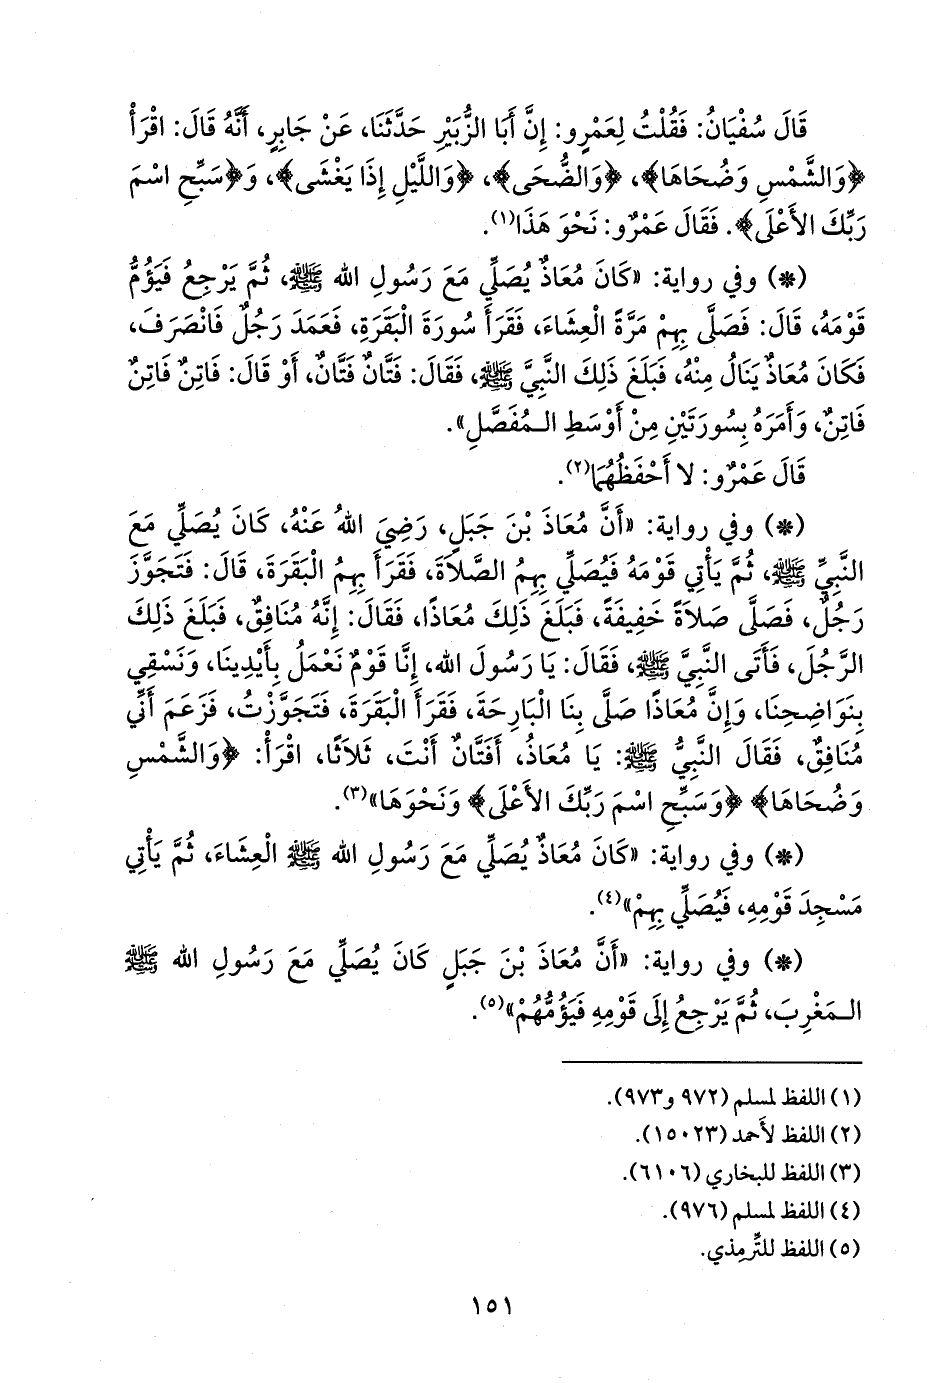 قَالَ سُفْيَانُ: فَقُلْتُ لِعَمْرٍو: إِنَّ أَبَا الزُّبَيْرِ حَدَّثَنَا، عَنْ جَابِرٍ، أَنَّهُ قَالَ: اقْرَأْ
﴿وَالشَّمْسِ وَضُحَاهَا﴾، ﴿وَالضُّحَى﴾، ﴿وَاللَّيْلِ إِذَا يَغْشَى﴾، وَ﴿سَبِّحِ اسْمَ
رَبِّكَ الأَعْلَى﴾. فَقَالَ عَمْرٌو: نَحْوَ هَذَا(١).
(*) وفي رواية: «كَانَ مُعَاذٌ يُصَلِّي مَعَ رَسُولِ الله ﷺ، ثُمَّ يَرْجِعُ فَيَؤُمُّ
قَوْمَهُ، قَالَ: فَصَلَّى بِهِمْ مَرَّةً الْعِشَاءَ، فَقَرَأَ سُورَةَ الْبَقَرَةِ، فَعَمَدَ رَجُلٌ فَانْصَرَفَ،
فَكَانَ مُعَاذٌ يَنَالُ مِنْهُ، فَبَلَغَ ذَلِكَ النَّبِيَّ ﷺ، فَقَالَ: فَتَّانٌ فَتَّانٌ، أَوْ قَالَ: فَاتِنٌ فَاتِنٌ
فَاتِنٌ، وَأَمَرَهُ بِسُورَتَيْنِ مِنْ أَوْسَطِ الـمُفَصَّلِ».
قَالَ عَمْرٌو: لا أَحْفَظُهُمَا(٢).
(*) وفي رواية: «أَنَّ مُعَاذَ بْنَ جَبَلٍ، رَضِيَ اللهُ عَنْهُ، كَانَ يُصَلِّي مَعَ
النَّبِيِّ ﷺ، ثُمَّ يَأْتِي قَوْمَهُ فَيُصَلِّي بِهِمُ الصَّلاَةَ، فَقَرَأَ بِهِمُ الْبَقَرَةَ، قَالَ: فَتَجَوَّزَ
رَجُلٌ، فَصَلَّى صَلاَةً خَفِيفَةً، فَبَلَغَ ذَلِكَ مُعَاذًا، فَقَالَ: إِنَّهُ مُنَافِقٌ، فَبَلَغَ ذَلِكَ
الرَّجُلَ، فَأَتَى النَّبِيَّ ﷺ، فَقَالَ: يَا رَسُولَ الله، إِنَّا قَوْمٌ نَعْمَلُ بِأَيْدِينَا، وَنَسْقِي
بِنَوَاضِحِنَا، وَإِنَّ مُعَاذًا صَلَّى بِنَا الْبَارِحَةَ، فَقَرَأَ الْبَقَرَةَ، فَتَجَوَّزْتُ، فَزَعَمَ أَنِّي
مُنَافِقٌ، فَقَالَ النَّبِيُّ ﷺ: يَا مُعَاذُ، أَفَتَّانٌ أَنْتَ، ثَلاَثًا، اقْرَأْ: ﴿وَالشَّمْسِ
وَضُحَاهَا﴾ ﴿وَسَبِّحِ اسْمَ رَبِّكَ الأَعْلَى﴾ وَنَحْوَهَا»(٣).
(*) وفي رواية: «كَانَ مُعَاذٌ يُصَلِّي مَعَ رَسُولِ الله ﷺ الْعِشَاءَ، ثُمَّ يَأْتِي
مَسْجِدَ قَوْمِهِ، فَيُصَلِّي بِهِمْ»(٤).
(*) وفي رواية: «أَنَّ مُعَاذَ بْنَ جَبَلٍ كَانَ يُصَلِّي مَعَ رَسُولِ الله ﷺ
الـمَغْرِبَ، ثُمَّ يَرْجِعُ إِلَى قَوْمِهِ فَيَؤُمُّهُمْ»(٥).
(١) اللفظ لمسلم (٩٧٢ و٩٧٣).
(٢) اللفظ لأَحمد (١٥٠٢٣).
(٣) اللفظ للبخاري (٦١٠٦).
(٤) اللفظ لمسلم (٩٧٦).
(٥) اللفظ للتِّرمِذي.
١٥١